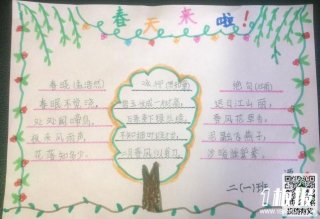 春天来啦！
春晓(孟浩然)
春眠不觉晓，
处处闻啼鸟。
夜来风雨声，
花落知多少。
咏柳
碧玉妆成一树高，
万条垂下绿丝绦。
不知细叶谁裁出，
二月春风似剪刀。
绝句(杜甫)
迟日江山丽，
春风花草香。
泥融飞燕子，
沙暖睡鸳鸯。
二(一)班